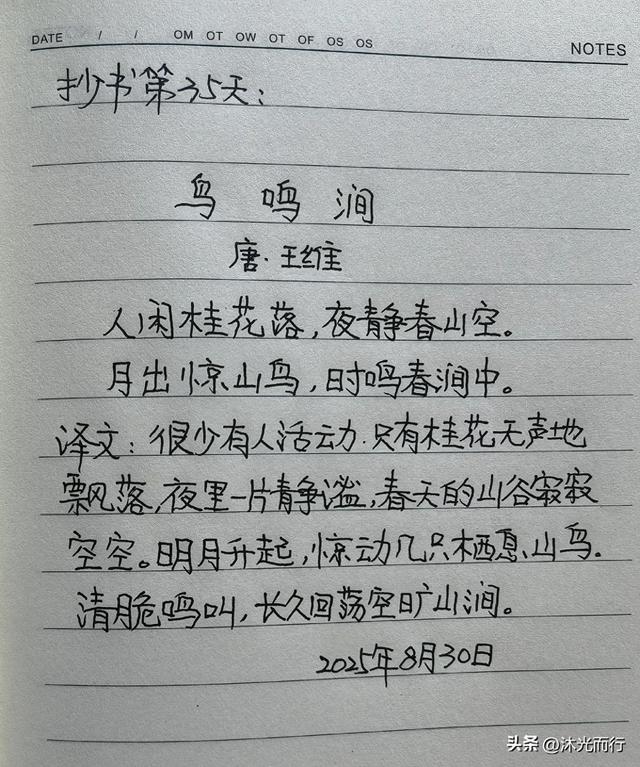 DATE / / OM OT OW OT OF OS OS
NOTES
抄书第35天：
鸟鸣涧
唐·王维
人闲桂花落，夜静春山空。
月出惊山鸟，时鸣春涧中。
译文：很少有人活动.只有桂花无声地
飘落，夜里一片静谧，春天的山谷寂寂
空空。明月升起，惊动几只栖息山鸟.
清脆鸣叫，长久回荡空旷山涧。
2025年8月30日
头条 @沐光而行